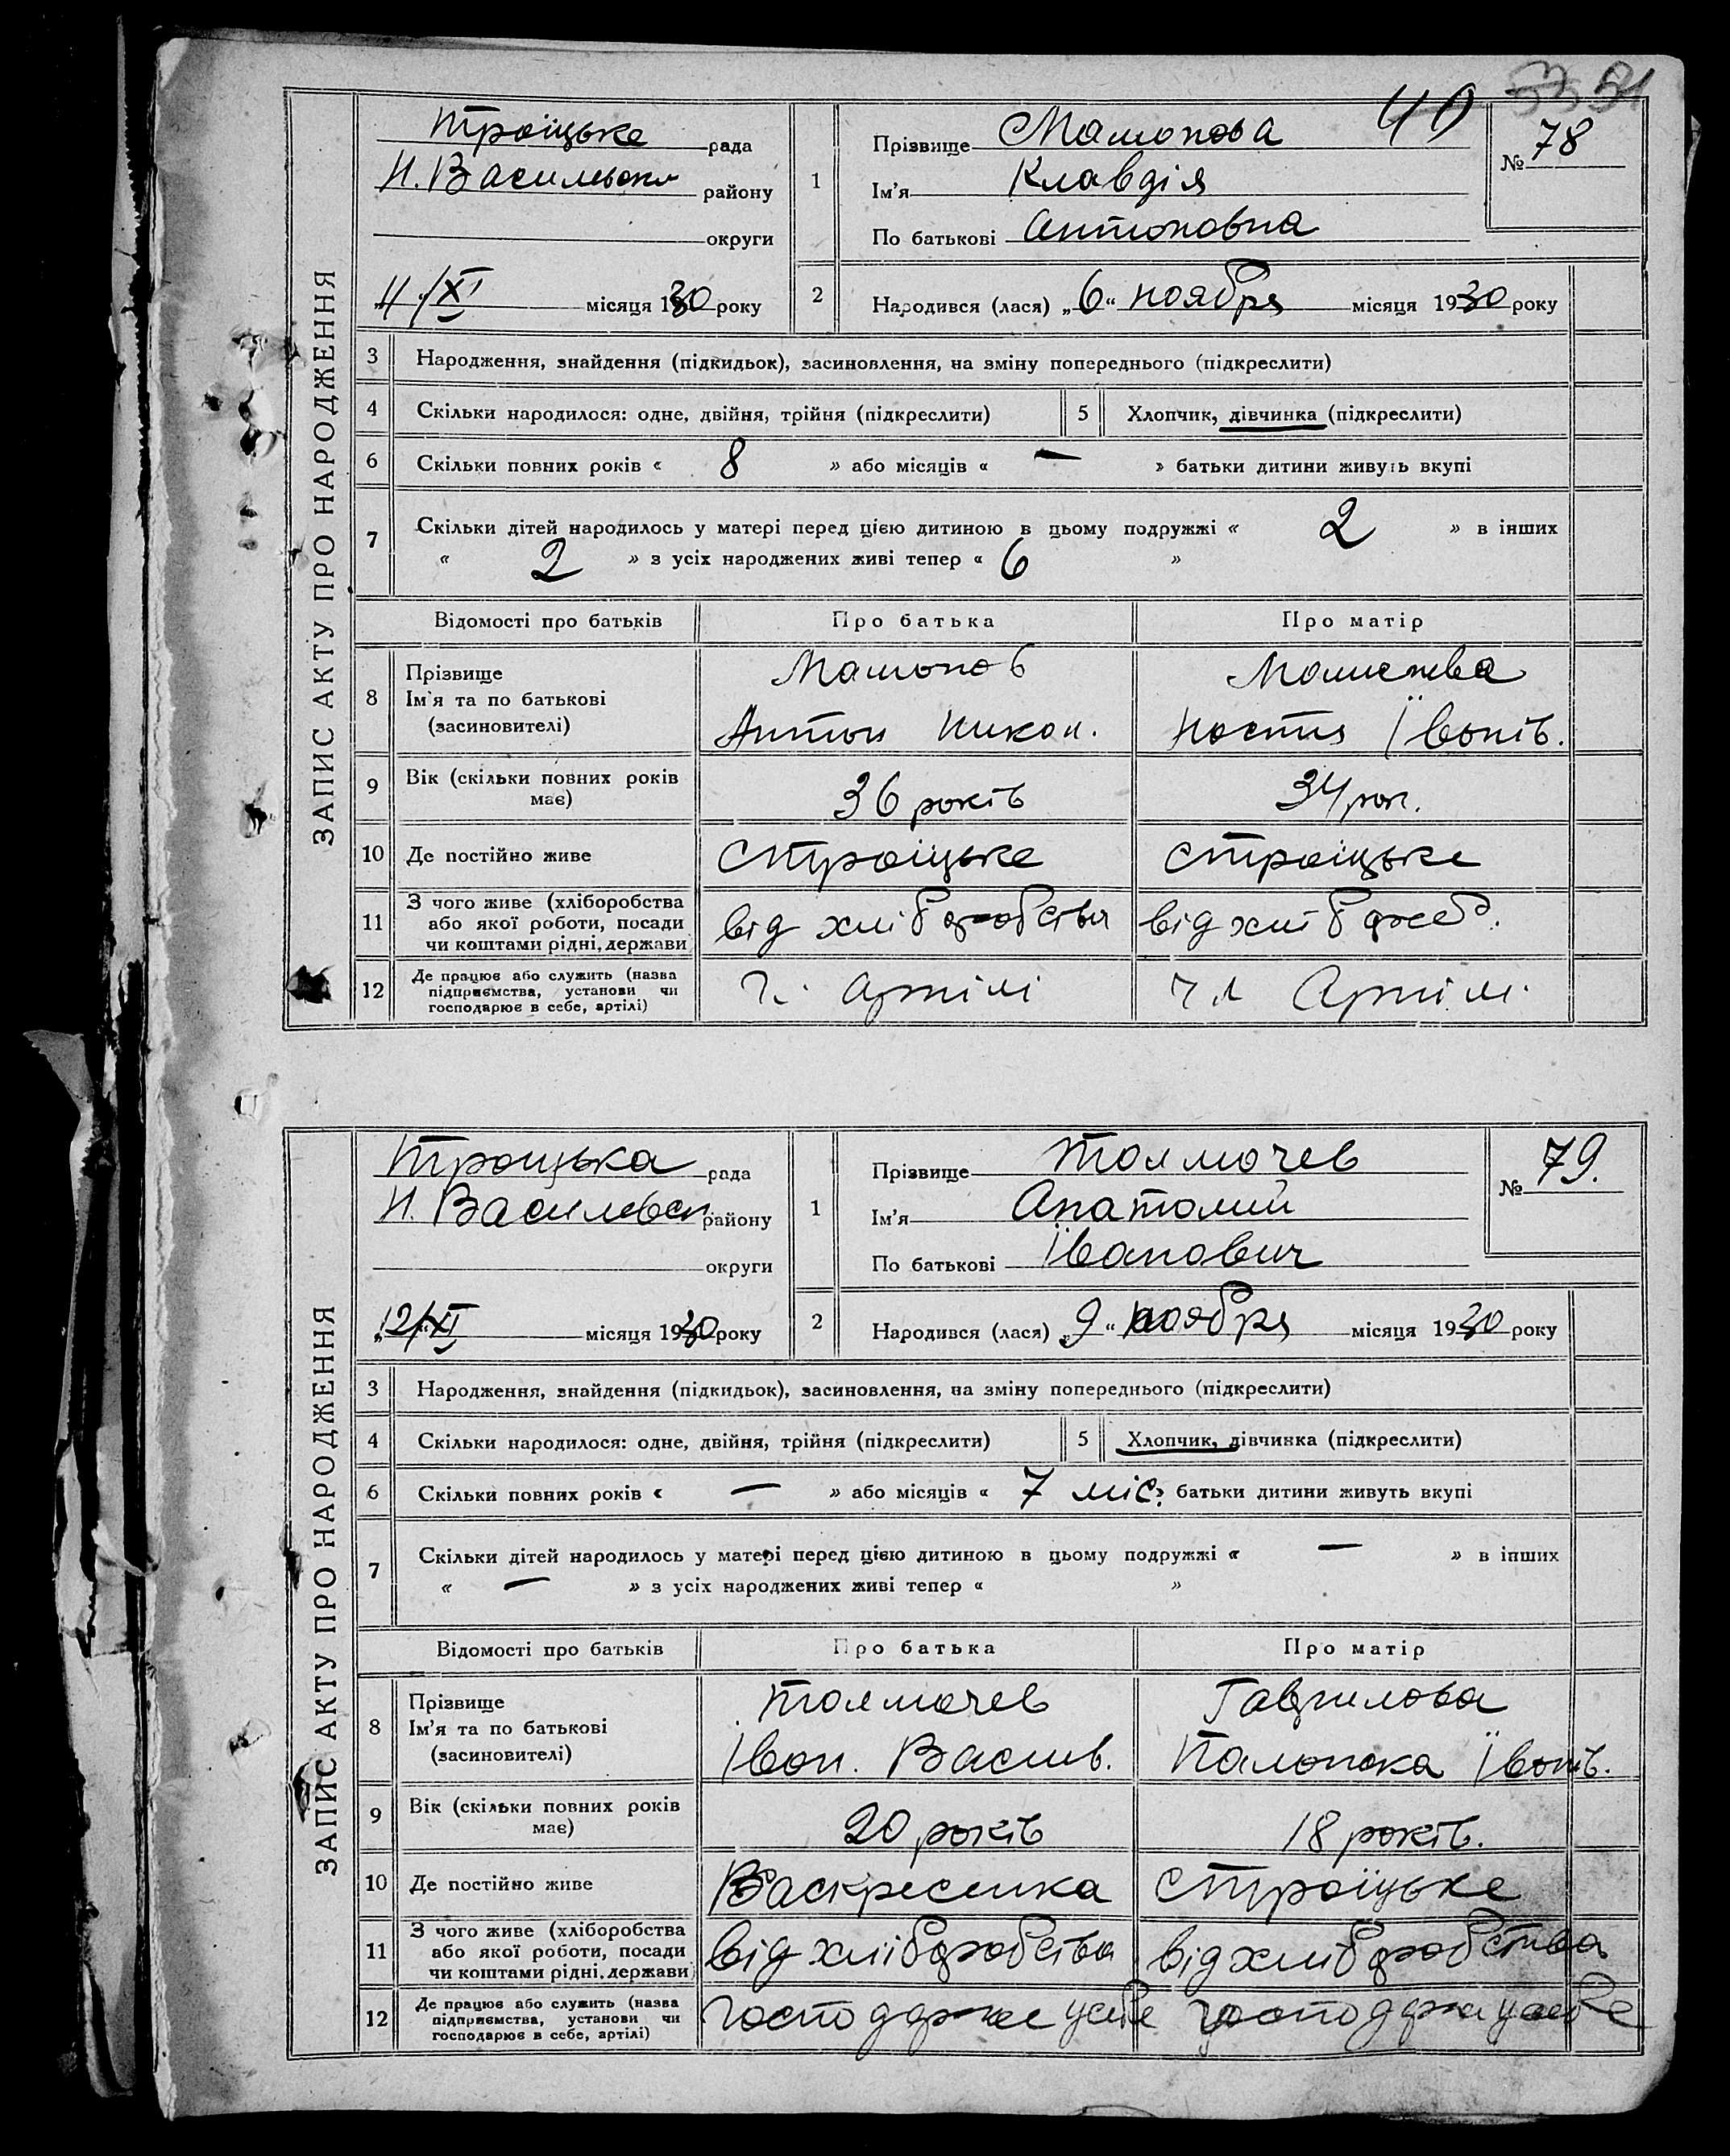 40 53 51
ЗАПИС АКТУ ПРО НАРОДЖЕННЯ
Троіцьке рада
Н. Васильевск району
округи
"11"/XI місяця 1930 року
1
Прізвище Мамонова
Ім'я Клавдія
По батькові Антоновна
№ 78
2 Народився (лася) „6“ ноября місяця 1930 року
3 Народження, знайдення (підкидьок), засиновлення, на зміну попереднього (підкреслити)
4 Скільки народилося: одне, двійня, трійня (підкреслити) 5 Хлопчик, дівчинка (підкреслити)
6 Скільки повних років « 8 » або місяців « — » батьки дитини живуть вкупі
7 Скільки дітей народилось у матері перед цією дитиною в цьому подружжі « 2 » в інших
« 2 » з усіх народжених живі тепер « 6 »
Відомості про батьків Про батька Про матір
8 Прізвище Мамонов
Ім'я та по батькові
(засиновителі) Антон Никон. Настя Івонів.
9 Вік (скільки повних років має) 36 років 34 рок.
10 Де постійно живе С Троіцьке С Троіцьке
11 З чого живе (хліборобства
або якої роботи, посади
чи коштами рідні, держави від хліборобства від хлібороб.
12 Де працює або служить (назва
підприємства, установи чи
господарює в себе, артілі) Ч. Артілі Чл Артіли.
ЗАПИС АКТУ ПРО НАРОДЖЕННЯ
Троицька рада
Н. Васильевск району
округи
„12“/XI місяця 1930 року
1
Прізвище Толмочев
Ім'я Анатолий
По батькові Іванович
№ 79.
2 Народився (лася) „9“ ноября місяця 1930 року
3 Народження, знайдення (підкидьок), засиновлення, на зміну попереднього (підкреслити)
4 Скільки народилося: одне, двійня, трійня (підкреслити) 5 Хлопчик, дівчинка (підкреслити)
6 Скільки повних років « — » або місяців « 7 міс. » батьки дитини живуть вкупі
7 Скільки дітей народилось у матері перед цією дитиною в цьому подружжі « — » в інших
« — » з усіх народжених живі тепер « »
Відомості про батьків Про батька Про матір
8 Прізвище Толмочев Гаврилова
Ім'я та по батькові
(засиновителі) Івон. Васив. Палонска Івонів.
9 Вік (скільки повних років має) 20 років 18 років.
10 Де постійно живе Васкресенка С Троіцьке
11 З чого живе (хліборобства
або якої роботи, посади
чи коштами рідні, держави від хліборобства від хліборобства
12 Де працює або служить (назва
підприємства, установи чи
господарює в себе, артілі)